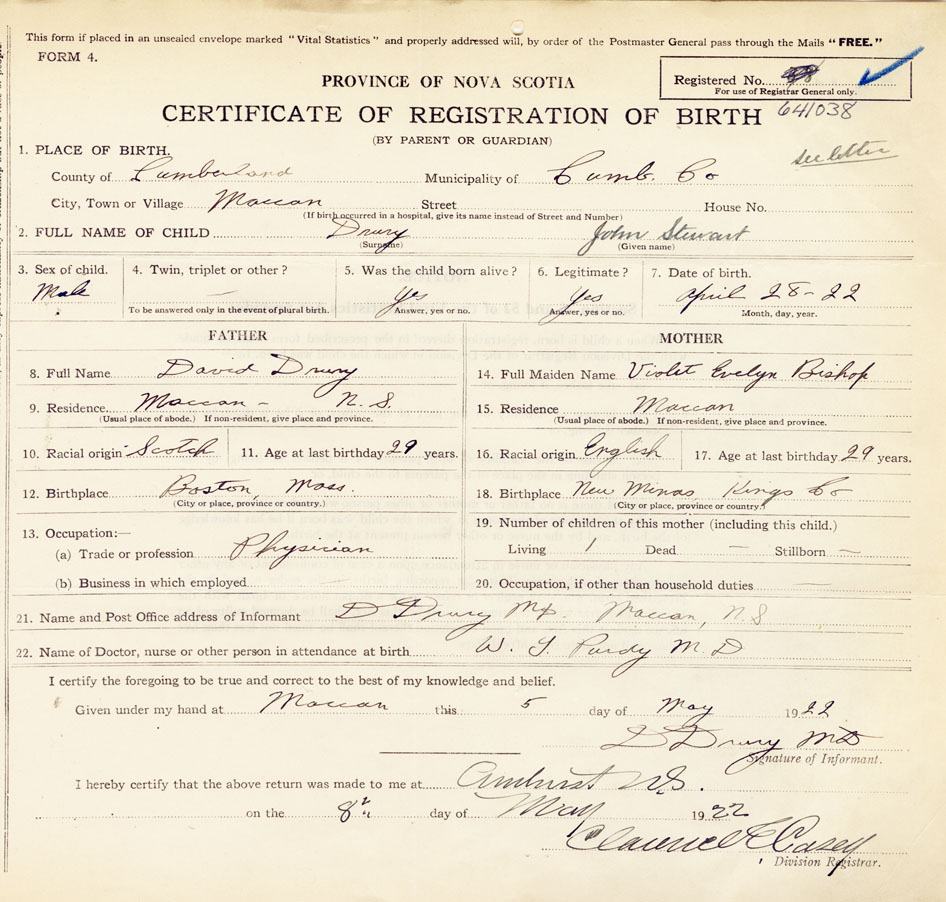 This form if placed in an unsealed envelope marked "Vital Statistics" and properly addressed will, by order of the Postmaster General pass through the Mails "FREE."
FORM 4.
PROVINCE OF NOVA SCOTIA
Registered No.
For use of Registrar General only.
CERTIFICATE OF REGISTRATION OF BIRTH 641038
(BY PARENT OR GUARDIAN)
see letter
1. PLACE OF BIRTH.
County of Cumberland Municipality of Cumb. Co
City, Town or Village Maccan Street House No.
(If birth occurred in a hospital, give its name instead of Street and Number)
2. FULL NAME OF CHILD Drury John Stewart
(Surname) (Given name)
3. Sex of child. 4. Twin, triplet or other? 5. Was the child born alive? 6. Legitimate? 7. Date of birth.
Male — Yes Yes April 28-22
To be answered only in the event of plural birth. Answer, yes or no. Answer, yes or no. Month, day, year.
FATHER MOTHER
8. Full Name David Drury 14. Full Maiden Name Violet Evelyn Bishop
9. Residence Maccan - N.S. 15. Residence Maccan
(Usual place of abode.) If non-resident, give place and province. (Usual place of abode.) If non-resident, give place and province.
10. Racial origin Scotch 11. Age at last birthday 29 years. 16. Racial origin English 17. Age at last birthday 29 years.
12. Birthplace Boston, Mass. 18. Birthplace New Minas Kings Co
(City or place, province or country.) (City or place, province or country.)
13. Occupation:— 19. Number of children of this mother (including this child.)
(a) Trade or profession Physician Living 1 Dead — Stillborn —
(b) Business in which employed 20. Occupation, if other than household duties
21. Name and Post Office address of Informant D Drury MD. Maccan, N.S
22. Name of Doctor, nurse or other person in attendance at birth W. T. Purdy M.D
I certify the foregoing to be true and correct to the best of my knowledge and belief.
Given under my hand at Maccan this 5 day of May 1922
D Drury MD
Signature of Informant.
I hereby certify that the above return was made to me at Amhurst N.S.
on the 8th day of May 1922
Casey
Division Registrar.